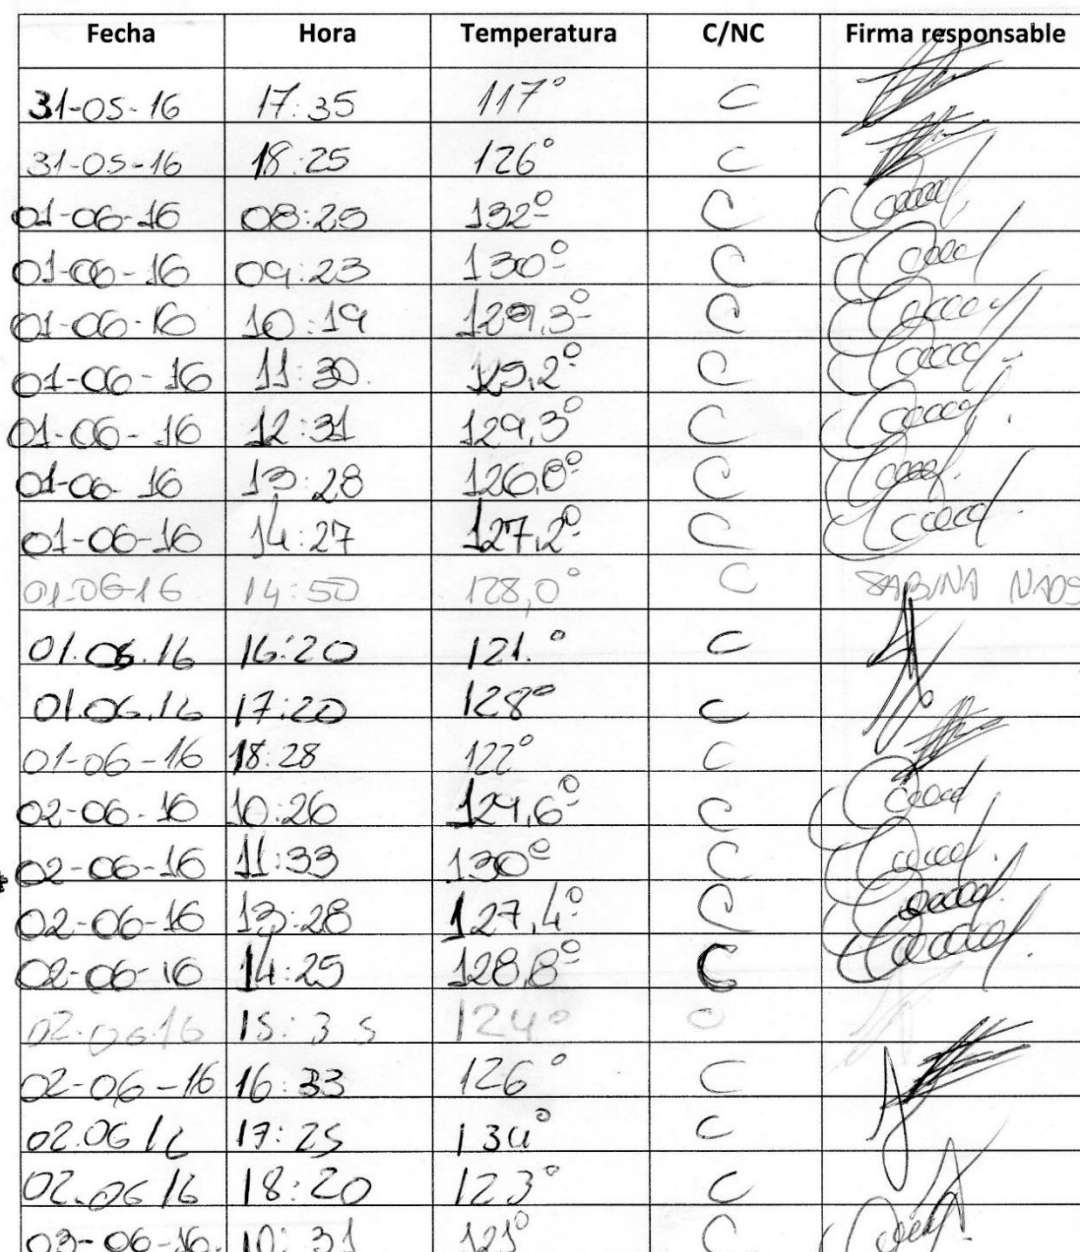 Fecha Hora Temperatura C/NC Firma responsable
31-05-16 17:35 117° C
31-05-16 18:25 126° C
01-06-16 08:25 132° C
01-06-16 09:23 130° C
01-06-16 10:19 129,3° C
01-06-16 11:30 125,2° C
01-06-16 12:31 129,3° C
01-06-16 13:28 126,8° C
01-06-16 14:27 127,2° C
01.06-16 14:50 128,0° C SABINA
01.06.16 16:20 121.° C
01.06.16 17:20 128° C
01-06-16 18:28 122° C
02-06-16 10:26 129,6° C
02-06-16 11:33 130° C
02-06-16 13:28 127,4° C
02-06-16 14:25 128,8° C
02.06.16 15:35 124° C
02-06-16 16:33 126° C
02.06 16 17:25 134° C
02.06 16 18:20 123° C
03-06-16. 10:31 121° C